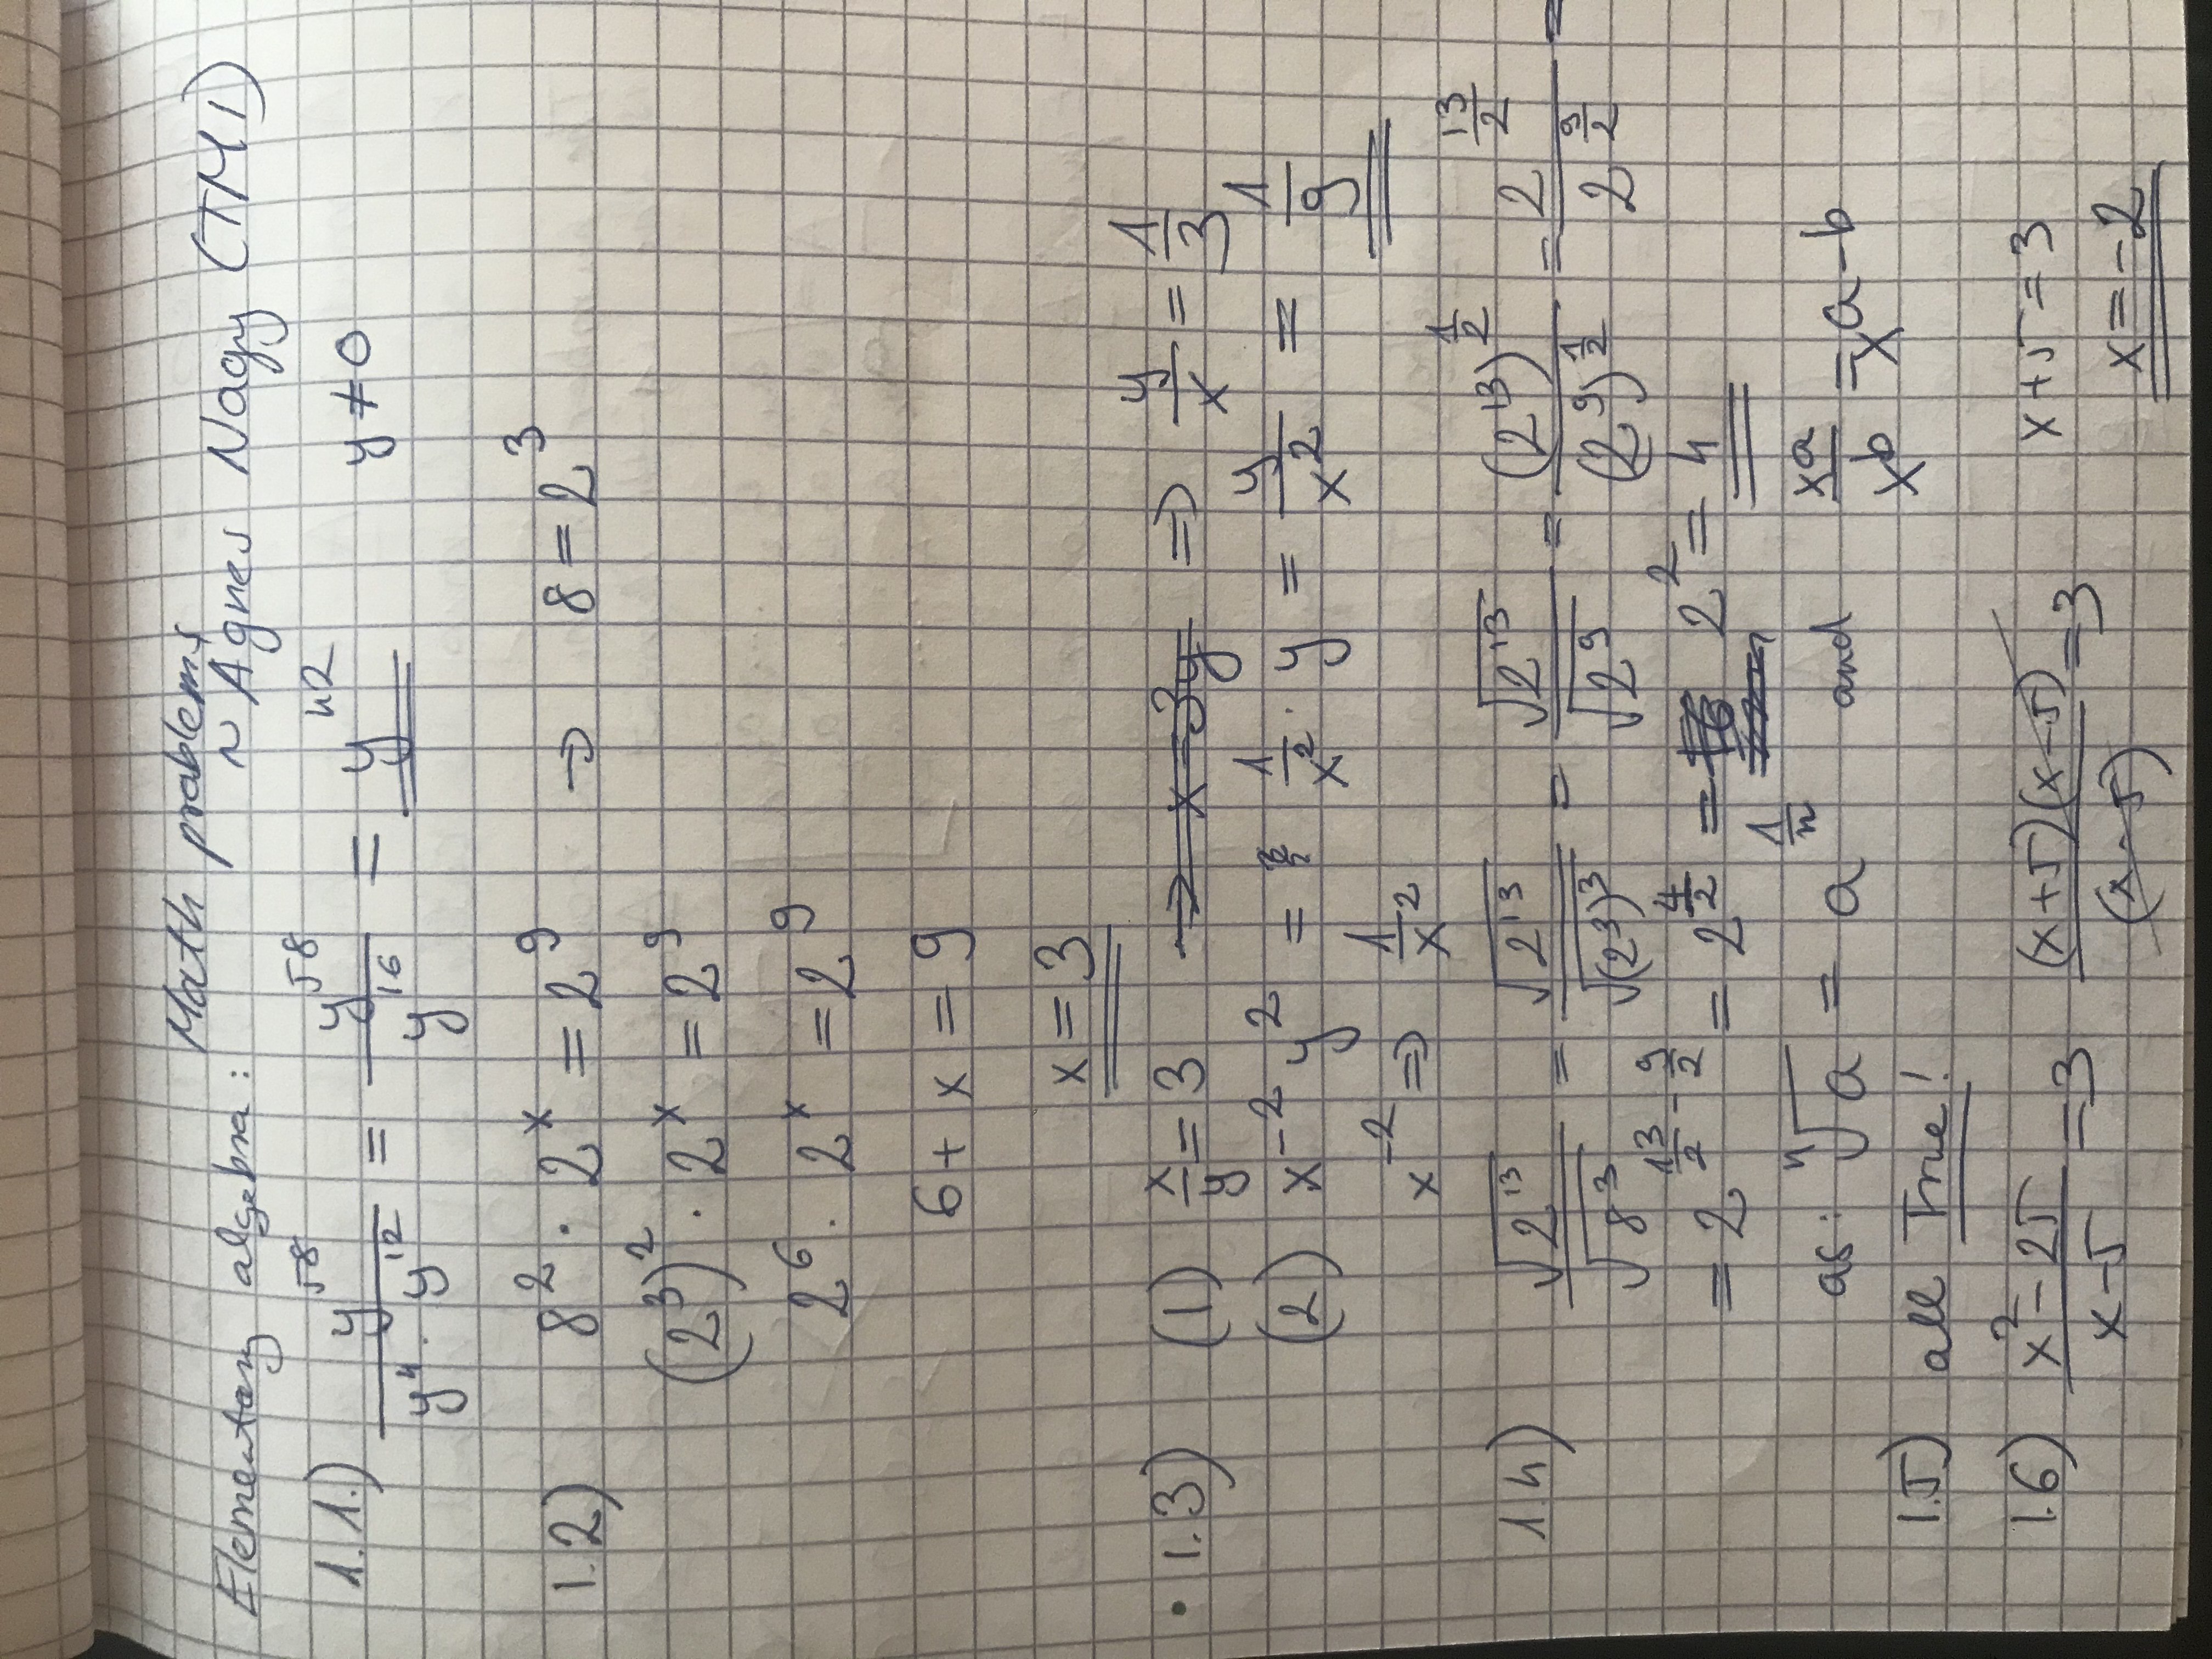 Math problems
Elementary algebra: ~ Agnes Nagy (TM1)
1.1.) y^58 / (y^4 · y^12) = y^58 / y^16 = y^42 y ≠ 0
1.2) 8^2 · 2^x = 2^9 → 8 = 2^3
(2^3)^2 · 2^x = 2^9
2^6 · 2^x = 2^9
6 + x = 9
x = 3
• 1.3) (1) x/y = 3 → x = 3y ⇒ y/x = 1/3
(2) x^-2 y^2 = 1/x^2 · y = y/x^2 = 1/9
x^-2 ⇒ 1/x^2
1.4) √2^13 / √8^3 = √2^13 / √(2^3)^3 = √2^13 / √2^9 = (2^13)^1/2 / (2^9)^1/2 = 2^13/2 / 2^9/2 =
= 2^(13/2 - 9/2) = 2^4/2 = 16 2^2 = 4
as: ⁿ√a = a^1/n and x^a / x^b = x^a-b
1.5) all True!
1.6) (x^2 - 25) / (x - 5) = 3 (x+5)(x-5) / (x-5) = 3 x + 5 = 3
x = -2